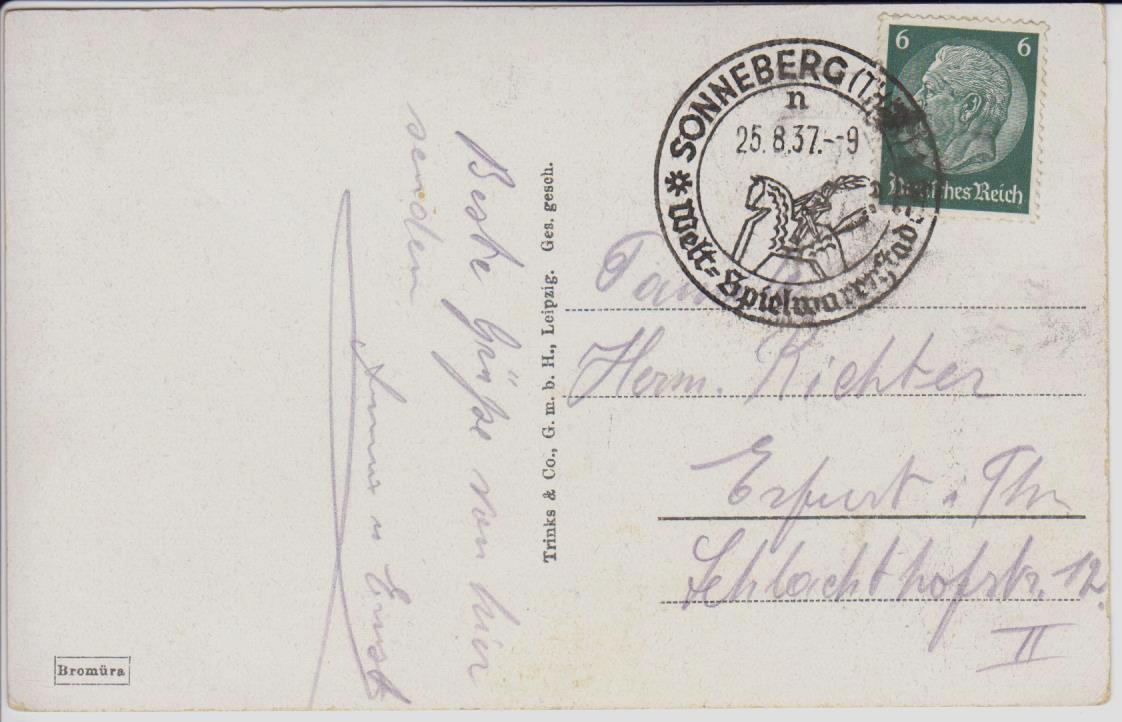 Beste Grüße von hier
senden
u Ernst
Trinks & Co., G. m. b. H., Leipzig. Ges. gesch.
Bromüra
SONNEBERG (Thür.)
n
25.8.37.--9
* Welt=Spielwarenstadt
6 6
Deutsches Reich
Fam.
Herm. Richter
Erfurt i. Thr
Schlachthofstr. 12.
II